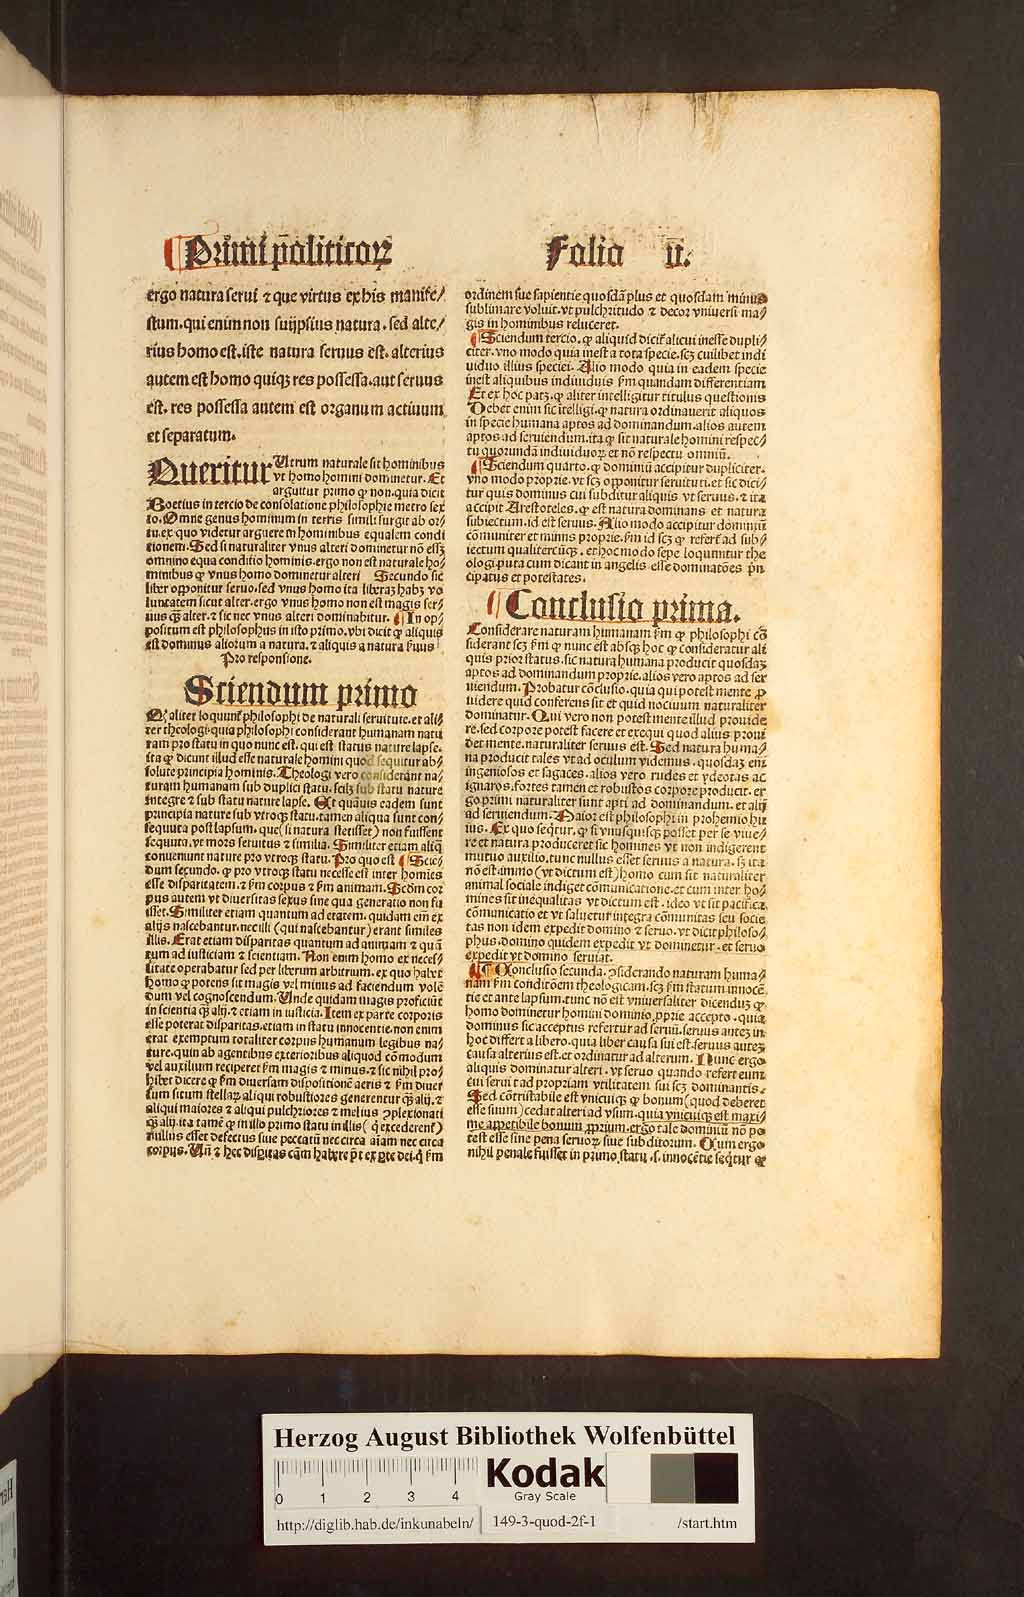 Primi politicoꝝ
Folia ii.
ergo natura serui ⁊ que virtus ex his manife⸗
stum. qui enim non suijpsius natura. sed alte⸗
rius homo est. iste natura seruus est. alterius
autem est homo quiqꝫ res possessa. aut seruus
est. res possessa autem est organum actiuum
et separatum.
Queritur Utrum naturale sit hominibus
vt homo homini dominetur. Et
arguitur primo ꝙ non. quia dicit
Boetius in tercio de consolatione philosophie metro sex
to. Omne genus hominum in terris simili surgit ab or⸗
tu. ex quo videtur arguere in hominibus equalem condi
tionem. Sed si naturaliter vnus alteri dominetur nō esſꝫ
omnino equa conditio hominis. ergo non est naturale ho⸗
minibus ꝙ vnus homo dominetur alteri Secundo sic
liber opponitur seruo. sed vnus homo ita liberaꝫ habꝫ vo
luntatem sicut alter. ergo vnus homo non est magis ser⸗
uus qȝ alter. ⁊ sic nec vnus alteri dominabitur. ¶ In op⸗
positum est philosophus in isto primo. vbi dicit ꝙ aliquis
est dominus aliorum a natura. ⁊ aliquis a natura seruus
Pro responsione.
Sciendum primo
Qꝙ aliter loquunt̄ philosophi de naturali seruitute. et ali⸗
ter theologi. quia philosophi considerant humanam natu
ram pro statu in quo nunc est. qui est status nature lapse.
ita ꝙ dicunt illud esse naturale homini quod sequitur ab⸗
solute principia hominis. Theologi vero considerant na⸗
turam humanam sub duplici statu. scilꝫ sub statu nature
integre ⁊ sub statu nature lapse. Et quāuis eadem sunt
principia nature sub vtroqꝫ statu. tamen aliqua sunt con⸗
sequuta post lapsum. que (si natura stetisset) non fuissent
sequuta. vt mors seruitus ⁊ similia. Similiter etiam aliq̄
conueniunt nature pro vtroqꝫ statu. Pro quo est ¶ Scien
dum secundo. ꝙ pro vtroqꝫ statu necesse est inter homies
esse disparitatem. ⁊ ẜm corpus ⁊ ẜm animam. Scdm cor
pus autem vt diuersitas sexus sine qua generatio non fu
isset. Similiter etiam quantum ad etatem. quidam em̄ ex
alijs nascebantur. nec illi (qui nascebantur) erant similes
illis. Erat etiam disparitas quantum ad animam ⁊ quā
tum ad iusticiam ⁊ scientiam. Non enim homo ex neces⸗
sitate operabatur sed per liberum arbitrium. ex quo habet
homo ꝙ potens sit magis vel minus ad faciendum volē
dum vel cognoscendum. Unde quidam magis proficiūt
in scientia qȝ alij. ⁊ etiam in iusticia. Item ex parte corporis
esse poterat disparitas. etiam in statu innocentie. non enim
erat exemptum totaliter corpus humanum legibus na⸗
ture. quin ab agentibus exterioribus aliquod cōmodum
vel auxilium reciperet ẜm magis ⁊ minus. ⁊ sic nihil pro⸗
hibet dicere ꝙ ẜm diuersam dispositionē aeris ⁊ ẜm diuer
sum situm stellaꝝ aliqui robustiores generentur qȝ alij. ⁊
aliqui maiores ⁊ aliqui pulchriores ⁊ melius ꝯplexionati
qȝ alij. ita tamē ꝙ in illo primo statu in illis (q̄ excederent)
nullus esset defectus siue peccatū nec circa aīam nec circa
corpus.
ordinem sue sapientie quosdā plus et quosdam minus
sublimare voluit. vt pulchritudo ⁊ decor vniuersi ma⸗
gis in hominibus reluceret.
¶ Sciendum tercio. ꝙ aliquid dicit̄ alicui inesse dupli⸗
citer. vno modo quia inest a tota specie. scꝫ cuilibet indi
uiduo illius speciei. Alio modo quia in eadem specie
inest aliquibus indiuiduis ẜm quandam differentiam
Et ex hoc patꝫ. ꝙ aliter intelligitur titulus questionis
Debet enim sic ītelligi. ꝙ natura ordinauerit aliquos
in specie humana aptos ad dominandum. alios autem
aptos ad seruiendum. ita ꝙ sit naturale homini respec⸗
tu quorundā indiuiduoꝝ et nō respectu omniū.
¶ Sciendum quarto. ꝙ dominiū accipitur dupliciter.
vno modo proprie. vt scꝫ opponitur seruituti. et sic dici⸗
tur quis dominus cui subditur aliquis vt seruus. ⁊ ita
accipit Arestoteles. ꝙ est natura dominans et natura
subiectum. id est seruus. Alio modo accipitur dominiū
cōmuniter et minus proprie. ẜm id scꝫ ꝙ refert̄ ad sub⸗
iectum qualitercūqꝫ. et hoc modo sepe loquuntur the
ologi. puta cum dicant in angelis esse dominatōes prī
cipatus et potestates.
¶ Conclusio prima.
Considerare naturam humanam ẜm ꝙ philosophi cō
siderant scꝫ ẜm ꝙ nunc est absqꝫ hoc ꝙ consideratur ali
quis prior status. sic natura humana producit quosdaꝫ
aptos ad dominandum proprie. alios vero aptos ad ser
uiendum. Probatur cōclusio. quia qui potest mente ꝓ
uidere quid conferens sit et quid nociuum naturaliter
dominatur. Qui vero non potest mente illud prouide
re. sed corpore potest facere et exequi quod alius proui
det mente. naturaliter seruus est. Sed natura huma⸗
na producit tales vt ad oculum videmus. quosdaꝫ em̄
ingeniosos et sagaces. alios vero rudes et ydeotas ac
ignaros. fortes tamen et robustos corpore producit. er
go primi naturaliter sunt apti ad dominandum. et alij
ad seruiendum. Maior est philosophi in prohemio hu
ius. Ex quo seqt̄ur. ꝙ si vnusquisqꝫ posset per se viue⸗
re et natura produceret sic homines vt non indigerent
mutuo auxilio. tunc nullus esset seruus a natura. sꝫ ita
nō est. immo (vt dictum est) homo cum sit naturaliter
animal sociale indiget cōmunicatione. et cum inter ho⸗
mines sit inequalitas vt dictum est. ideo vt sit pacifica
cōmunicatio et vt saluetur integra cōmunitas seu socie
tas non idem expedit domino ⁊ seruo. vt dicit philoso⸗
phus. domino quidem expedit vt dominetur. et seruo
expedit vt domino seruiat.
¶ Conclusio secunda. ꝯsiderando naturam huma⸗
nam ẜm conditōem theologicam. scꝫ ẜm statum innocē
tie et ante lapsum. tunc nō est vniuersaliter dicenduꝫ ꝙ
homo dominetur homini dominio ꝓprie accepto. quia
dominus sic acceptus refertur ad seruū. seruus auteꝫ in
hoc differt a libero. quia liber causa sui est. seruus auteꝫ
causa alterius est. et ordinatur ad alterum. Nunc ergo
aliquis dominatur alteri. vt seruo quando refert eum
cui seruit ad propriam vtilitatem sui scꝫ dominantis.
Sed cōtristabile est vnicuiqꝫ ꝙ bonum (quod deberet
esse suum) cedat alteri ad vsum. quia vnicuiqꝫ est maxi⸗
me appetibile bonum ꝓprium. ergo tale dominiū nō po
test esse sine pena seruoꝝ siue subditorum. Cum ergo
nihil penale fuisset in primo statu .s. innocētie seqt̄ur ꝙ
Herzog August Bibliothek Wolfenbüttel
0 1 2 3 4
Kodak
Gray Scale
http://diglib.hab.de/inkunabeln/ 149-3-quod-2f-1 /start.htm